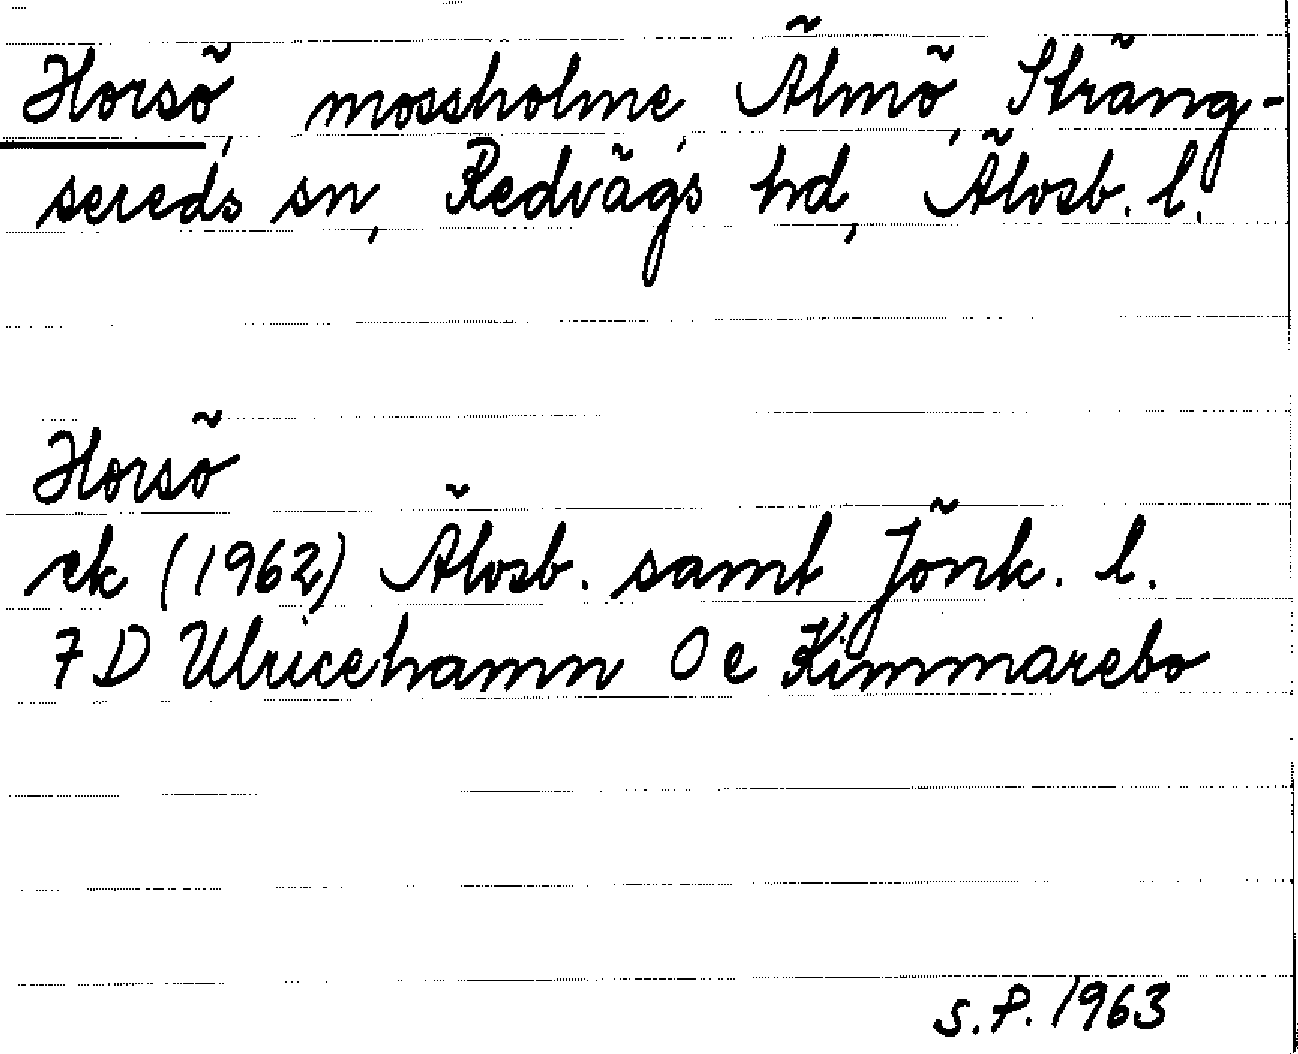 Horsö, mossholme, Älmö, Sträng-
sereds sn, Redvägs hd, Älvsb. l.
Horsö
ek (1962) Älvsb. samt Jönk. l.
7 D Ulricehamn 0 e Kimmarebo
S.P. 1963